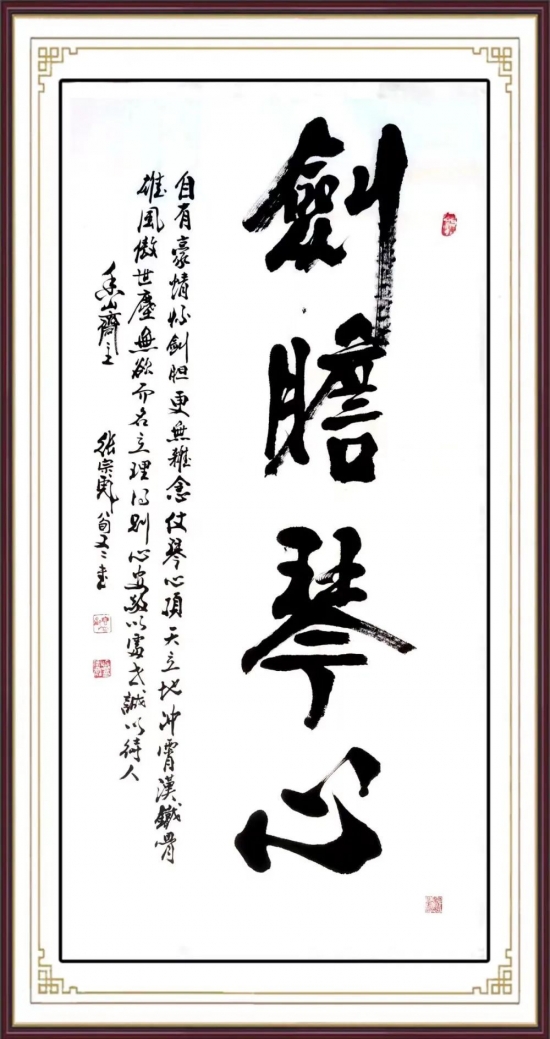 劍膽琴心
自有豪情怀劍胆更無雜念仗琴心頂天立地冲霄漢鐵骨
雄風傲世塵無欲而名立理得則心安敬以處世誠以待人
山齋主 张宗 書